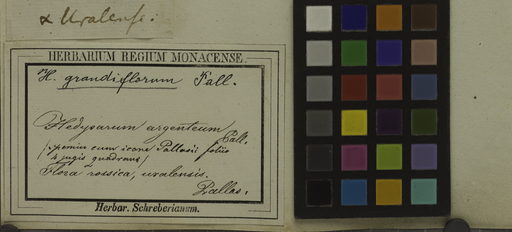 α Uralense:
HERBARIUM REGIUM MONACENSE.
H. grandiflorum Pall.
Hedysarum argenteum Pall.
(specimen cum icone Pallasii folio
4 jugis quadrans)
Flora rossica, uralensis.
Pallas.
Herbar. Schreberianum.